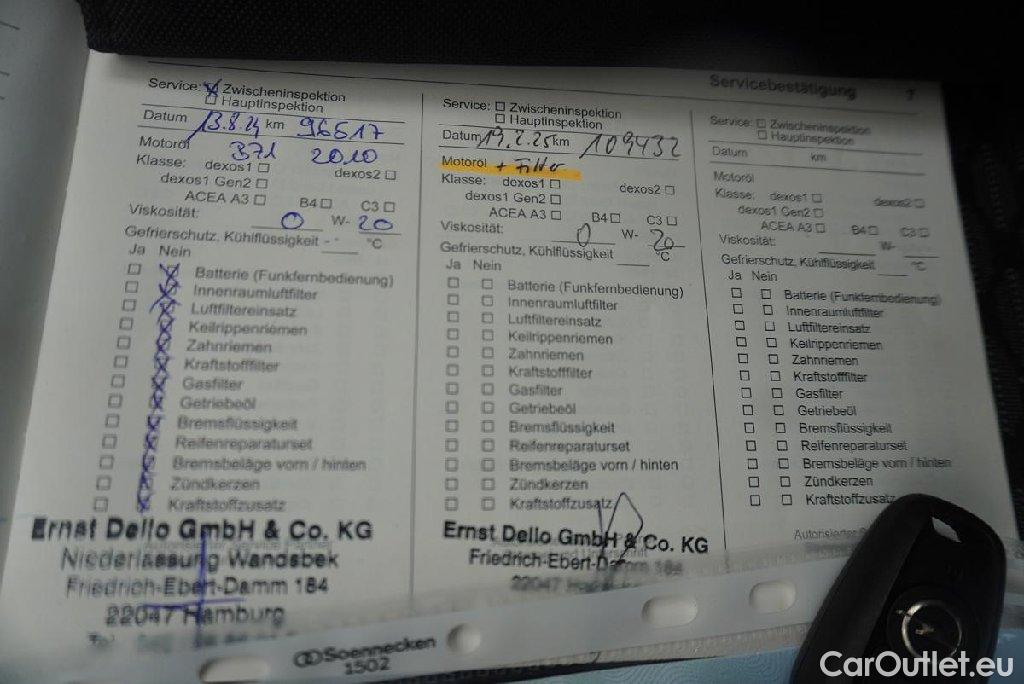 Servicebestätigung 7
Service: Zwischeninspektion
Hauptinspektion
Datum 13.8.24 km 96517
Motoröl B71 2010
Klasse: dexos1 dexos2
dexos1 Gen2
ACEA A3 B4 C3
Viskosität: 0 W- 20
Gefrierschutz, Kühlflüssigkeit - °C
Ja Nein
Batterie (Funkfernbedienung)
Innenraumluftfilter
Luftfiltereinsatz
Keilrippenriemen
Zahnriemen
Kraftstofffilter
Gasfilter
Getriebeöl
Bremsflüssigkeit
Reifenreparaturset
Bremsbeläge vorn / hinten
Zündkerzen
Kraftstoffzusatz
Ernst Dello GmbH & Co. KG
Niederlassung Wandsbek
Friedrich-Ebert-Damm 184
22047 Hamburg
Service: Zwischeninspektion
Hauptinspektion
Datum 19.2.25 km 109432
Motoröl + Filter
Klasse: dexos1 dexos2
dexos1 Gen2
ACEA A3 B4 C3
Viskosität: 0 W- 20
Gefrierschutz, Kühlflüssigkeit °C
Ja Nein
Batterie (Funkfernbedienung)
Innenraumluftfilter
Luftfiltereinsatz
Keilrippenriemen
Zahnriemen
Kraftstofffilter
Gasfilter
Getriebeöl
Bremsflüssigkeit
Reifenreparaturset
Bremsbeläge vorn / hinten
Zündkerzen
Kraftstoffzusatz
Ernst Dello GmbH & Co. KG
Friedrich-Ebert-Damm 184
22047
Service: Zwischeninspektion
Hauptinspektion
Datum km
Motoröl
Klasse: dexos1 dexos2
dexos1 Gen2
ACEA A3 B4 C3
Viskosität: W-
Gefrierschutz, Kühlflüssigkeit °C
Ja Nein
Batterie (Funkfernbedienung)
Innenraumluftfilter
Luftfiltereinsatz
Keilrippenriemen
Zahnriemen
Kraftstofffilter
Gasfilter
Getriebeöl
Bremsflüssigkeit
Reifenreparaturset
Bremsbeläge vorn / hinten
Zündkerzen
Kraftstoffzusatz
Autorisierter
Soennecken
1502
CarOutlet.eu